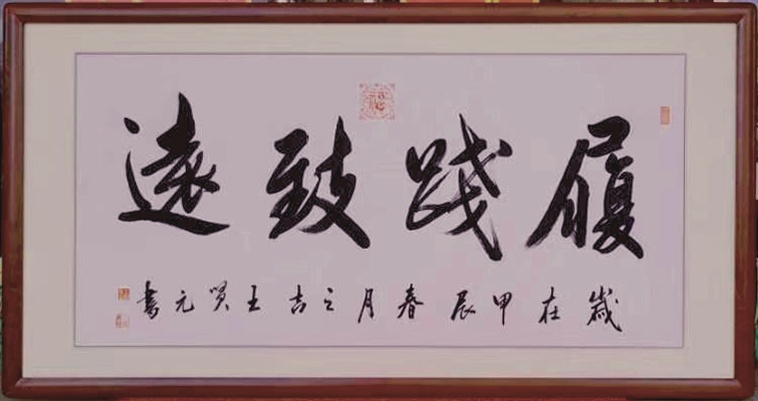 履践致遠
歲在甲辰春月之吉王贤元書